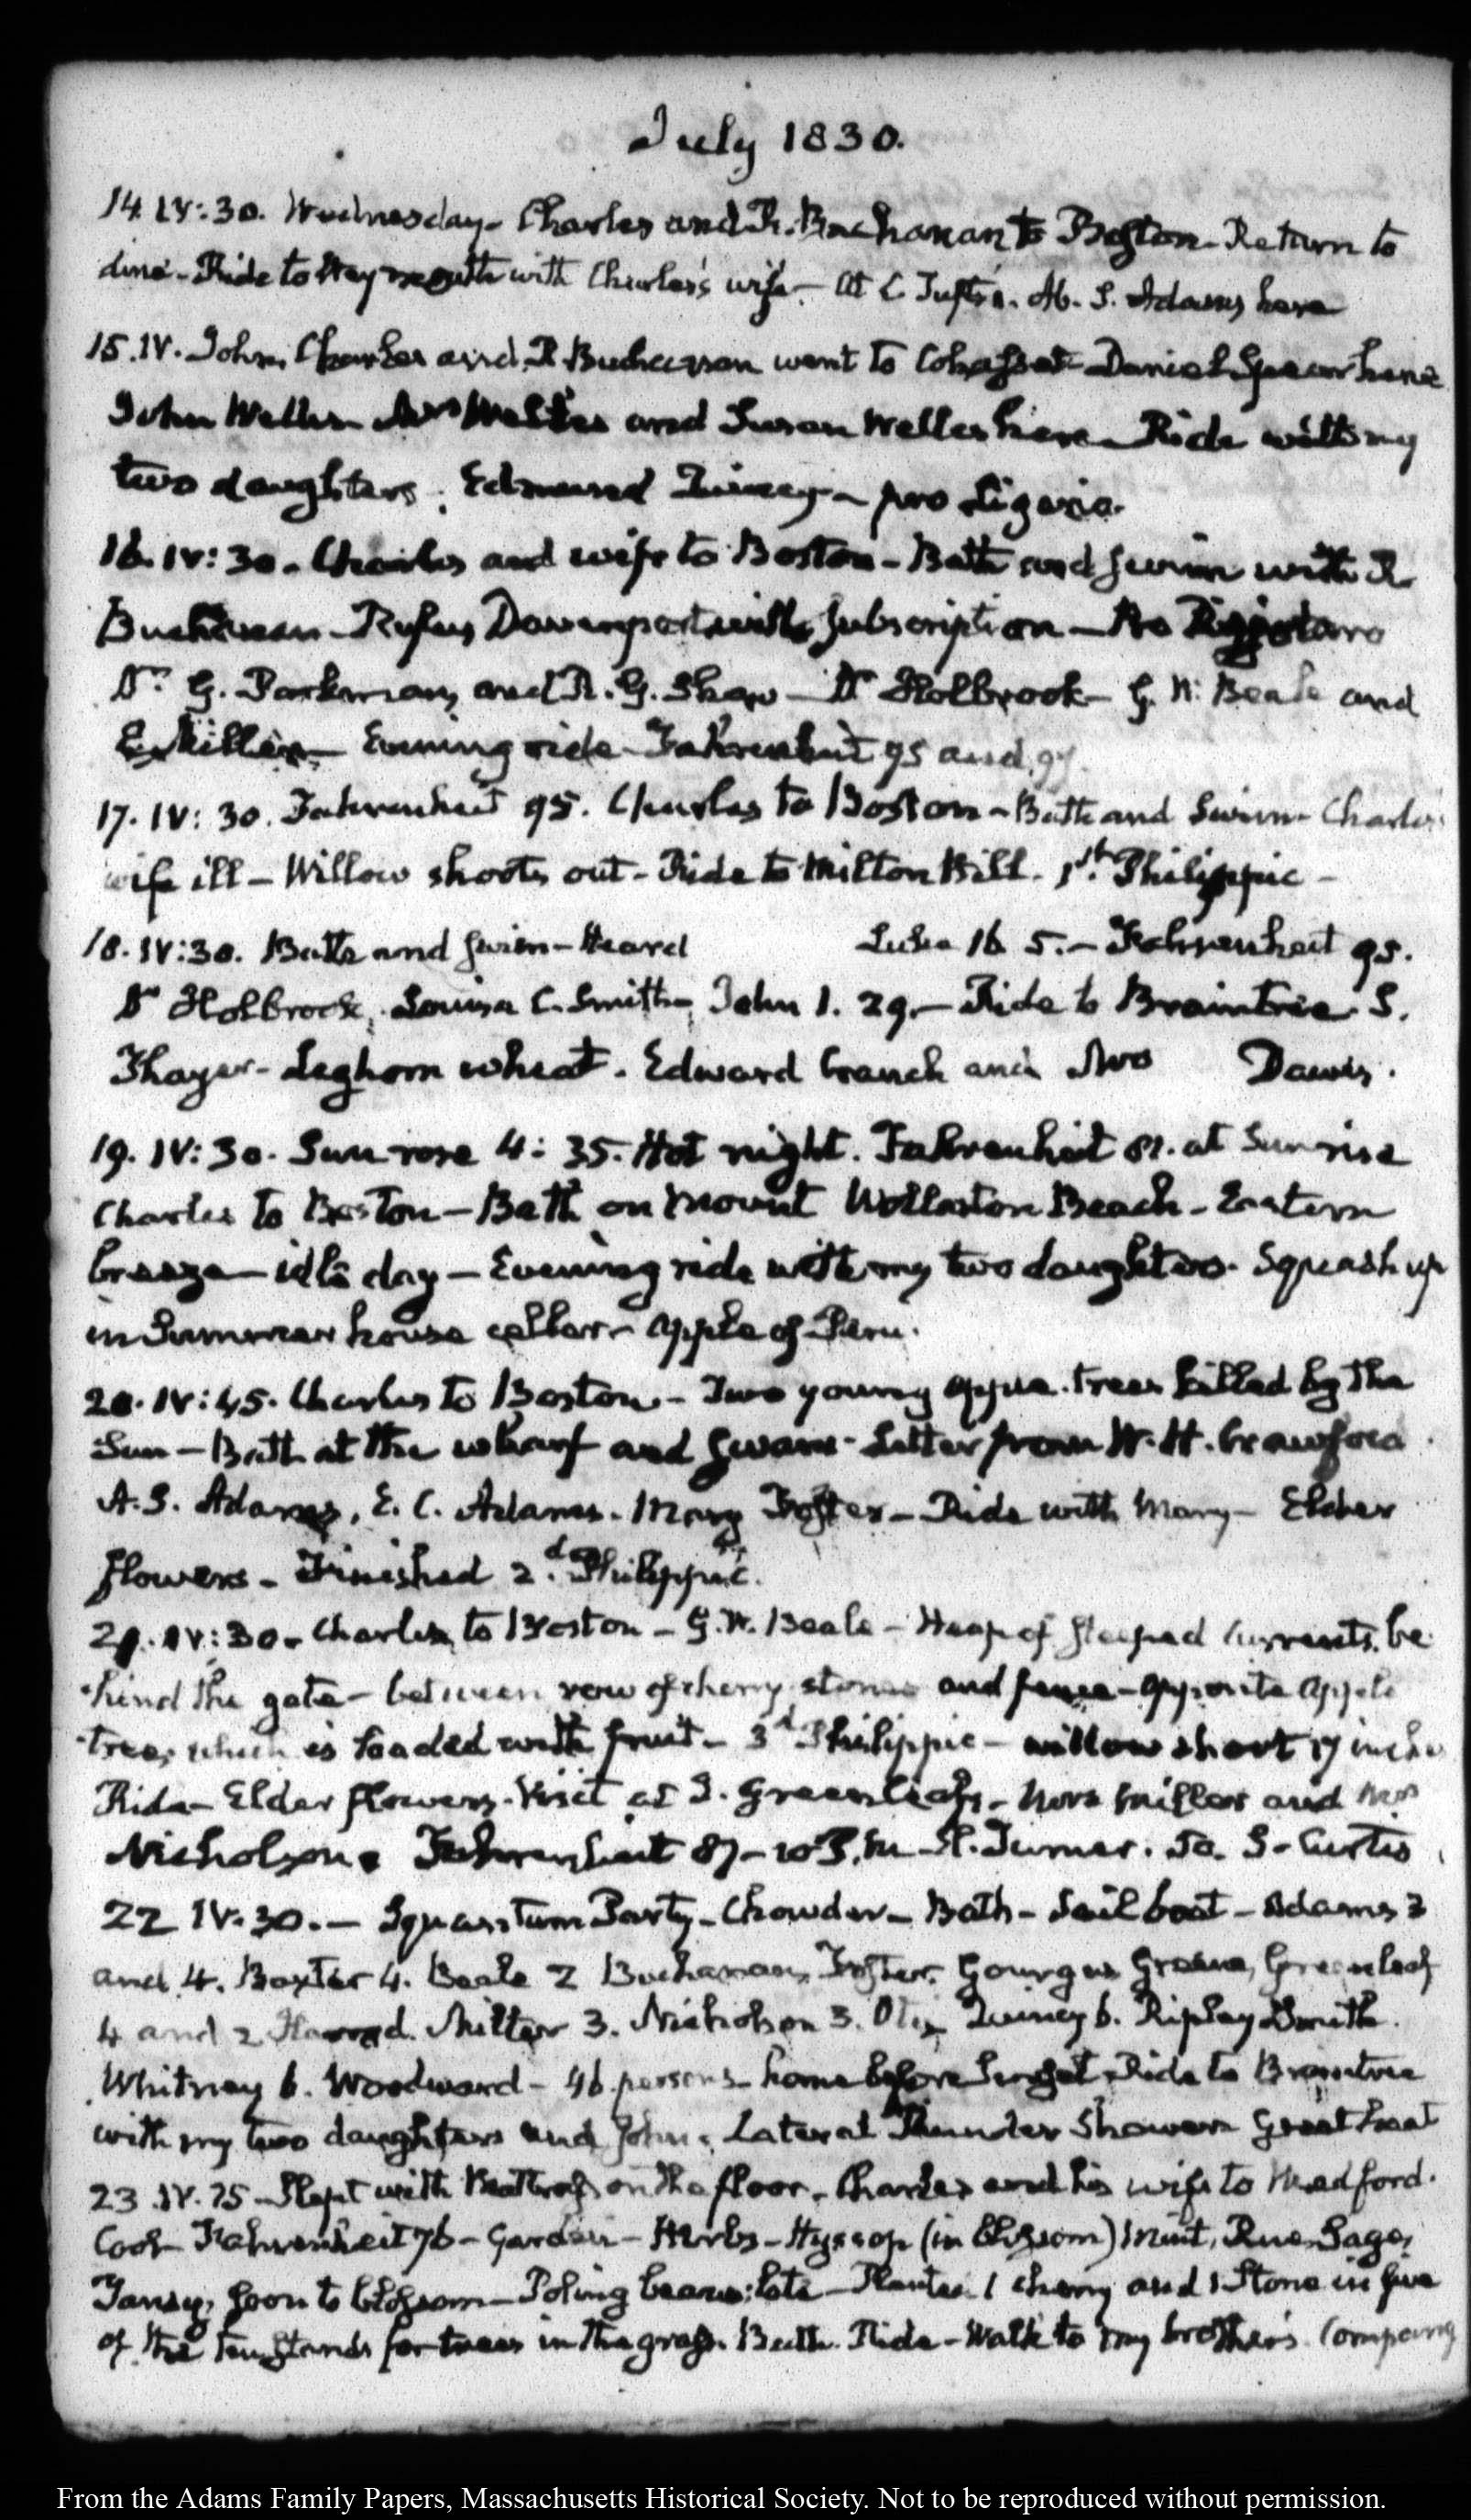 July 1830.
14. IV:30. Wednesday. Charles and R. Buchanan to Boston. Return to
dine. Ride to Weymouth with Charles's wife. At C. Tufts's. A. S. Adams here
15. IV. John, Charles and R Buchanan went to Cohasset Daniel Spear here
John Welles Mrs Welles and Susan Welles here Ride with my
two daughters. Edmund Quincy pro Ligario.
16. IV:30. Charles and wife to Boston - Bath and swim with R
Buchanan Rufus Davenport with subscription - Pro
Dr. G. Parkman, and R. G. Shaw - Dr Holbrook - G. W. Beale and
E. Miller. Evening ride Fahrenheit 95 and 97
17. IV:30. Fahrenheit 95. Charles to Boston - Bath and Swim - Charles's
wife ill - Willow shoots out - Ride to Milton Hill. 1st. Philippic -
18. IV:30. Bath and swim - Heard Luke 16 5. - Fahrenheit 95.
Dr Holbrook, Louisa C. Smith John 1. 29. - Ride to Braintree. S.
Thayer - Leghorn wheat. Edward Cranch and Mrs Dawes.
19. IV:30. Sun rose 4:35. Hot night. Fahrenheit 81. at Sunrise
Charles to Boston - Bath on Mount Wollaston Beach - Eastern
breeze - idle day - Evening ride with my two daughters. Squash up
in Summer house cellar - apple of Peru.
20. IV:45. Charles to Boston - Two young apple trees killed by the
Sun - Bath at the wharf and swam - Letter from W. H. Crawford.
A. S. Adams, E. C. Adams. Mary Foster - Ride with Mary - Elder
flowers - Finished 2d. Philippic.
21. IV:30. Charles to Boston - G. W. Beale - Heap of steeped Currants be
hind the gate - between row of cherry stones and fence - opposite apple
tree, which is loaded with fruit - 3d Philippic - willow shoot 17 inches
Ride - Elder flowers. Visit at T. Greenleaf's - Mrs Miller and Mrs
Nicholson. Fahrenheit 87 - 10 P.M. Turner. S. Curtis
22 IV.30. - Squantum Party - Chowder - Bath - Sail boat - Adams 3
and 4. Baxter 4. Beale 2 Buchanan, Foster, Gourgas Greene, Greenleaf
4 and 2 Miller 3. Nicholson 3. Otis Quincy 6. Ripley Smith.
Whitney 6. Woodward - 46 persons - home before Sunset Ride to Braintree
with my two daughters and John. Lateral Thunder Shower Great heat
23. IV.15 - Slept with on the floor. Charles and his wife to Medford.
Cool Fahrenheit 76 - Garden - Herbs - Hyssop (in blossom) Mint, Rue, Sage,
Tansy, soon to blossom - Poling beans; late Planted 1 cherry and 1 Stone in five
of the ten stands for trees in the grass. Bath. Ride - Walk to my brother's. Company
From the Adams Family Papers, Massachusetts Historical Society. Not to be reproduced without permission.